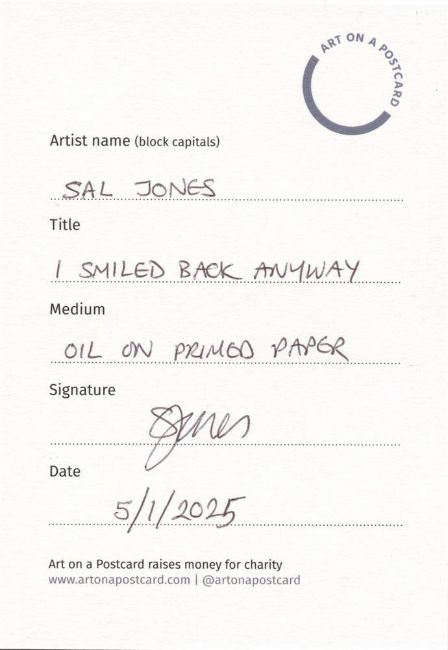 ART ON A POSTCARD
Artist name (block capitals)
SAL JONES
Title
I SMILED BACK ANYWAY
Medium
OIL ON PRIMED PAPER
Signature
SJones
Date
5/1/2025
Art on a Postcard raises money for charity
www.artonapostcard.com | @artonapostcard